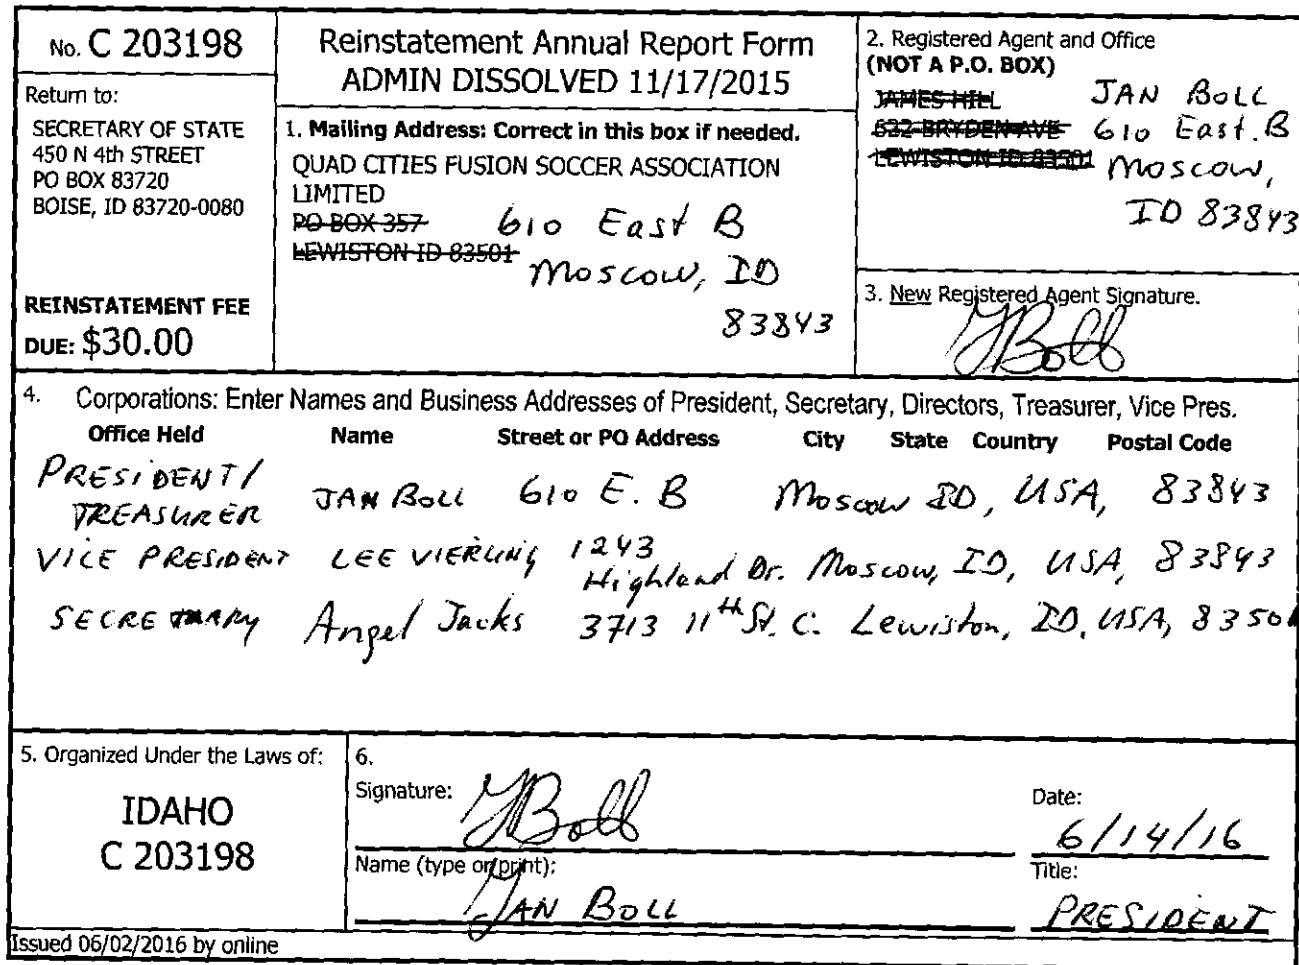 No. C 203198
Return to:
SECRETARY OF STATE
450 N 4th STREET
PO BOX 83720
BOISE, ID 83720-0080
REINSTATEMENT FEE
DUE: $30.00
Reinstatement Annual Report Form
ADMIN DISSOLVED 11/17/2015
1. Mailing Address: Correct in this box if needed.
QUAD CITIES FUSION SOCCER ASSOCIATION
LIMITED
PO BOX 357 610 East B
LEWISTON ID 83501 Moscow, ID
83843
2. Registered Agent and Office
(NOT A P.O. BOX)
JAMES HILL JAN BOLL
622 BRYDEN AVE 610 East.B
LEWISTON ID 83501 Moscow,
ID 83843
3. New Registered Agent Signature.
JBoll
4. Corporations: Enter Names and Business Addresses of President, Secretary, Directors, Treasurer, Vice Pres.
Office Held Name Street or PO Address City State Country Postal Code
PRESIDENT/
TREASURER JAN BOLL 610 E. B Moscow ID, USA, 83843
VICE PRESIDENT LEE VIERLING 1243
Highland Dr. Moscow, ID, USA, 83843
SECRETARY Angel Jacks 3713 11th St. C. Lewiston, ID, USA, 83501
5. Organized Under the Laws of:
IDAHO
C 203198
6.
Signature: JBoll
Date:
6/14/16
Name (type or print):
JAN BOLL
Title:
PRESIDENT
Issued 06/02/2016 by online